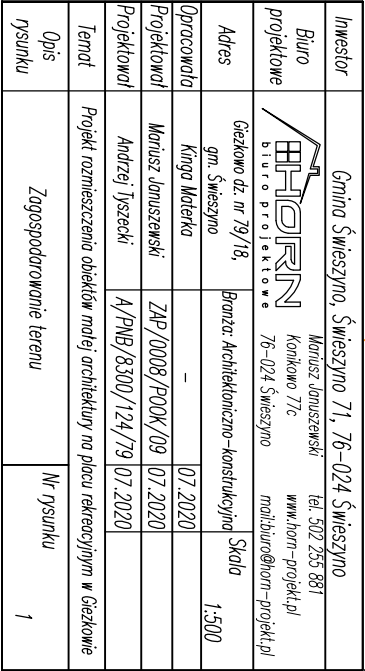 Inwestor
Gmina Świeszyno, Świeszyno 71, 76-024 Świeszyno
Biuro
projektowe
HORN
biuro projektowe
Mariusz Januszewski
Konikowo 77c
76-024 Świeszyno
tel. 502 255 881
www.horn-projekt.pl
mail:biuro@horn-projekt.pl
Adres
Giezkowo dz. nr 79/18,
gm. Świeszyno
Branża: Architektoniczno-konstrukcyjna
Skala
1:500
Opracowała
Kinga Materka
-
07.2020
Projektował
Mariusz Januszewski
ZAP/0008/POOK/09
07.2020
Projektował
Andrzej Tyszecki
A/PNB/8300/124/79
07.2020
Temat
Projekt rozmieszczenia obiektów małej architektury na placu rekreacyjnym w Giezkowie
Opis
rysunku
Zagospodarowanie terenu
Nr rysunku
1